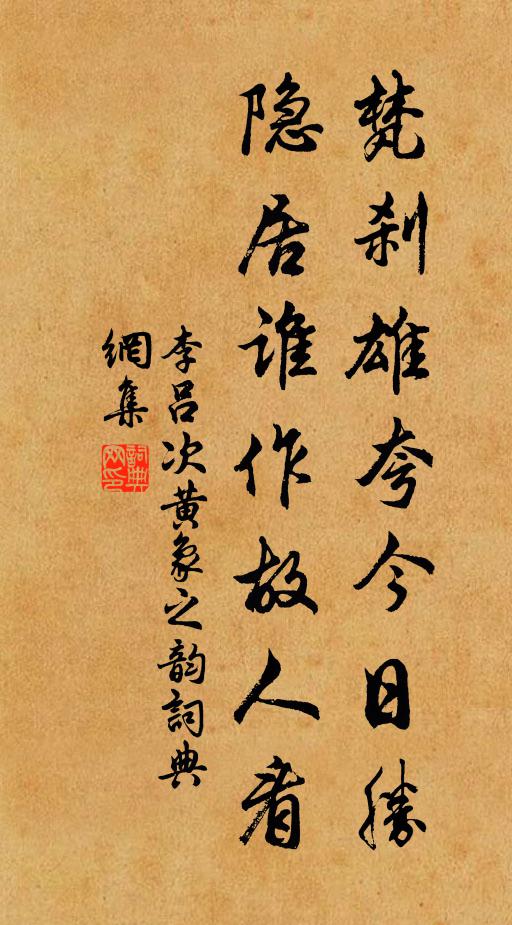 梵刹雄夸今日勝
隐居谁作故人看
李吕次黄象之韵詞典
網集
詞典
网印